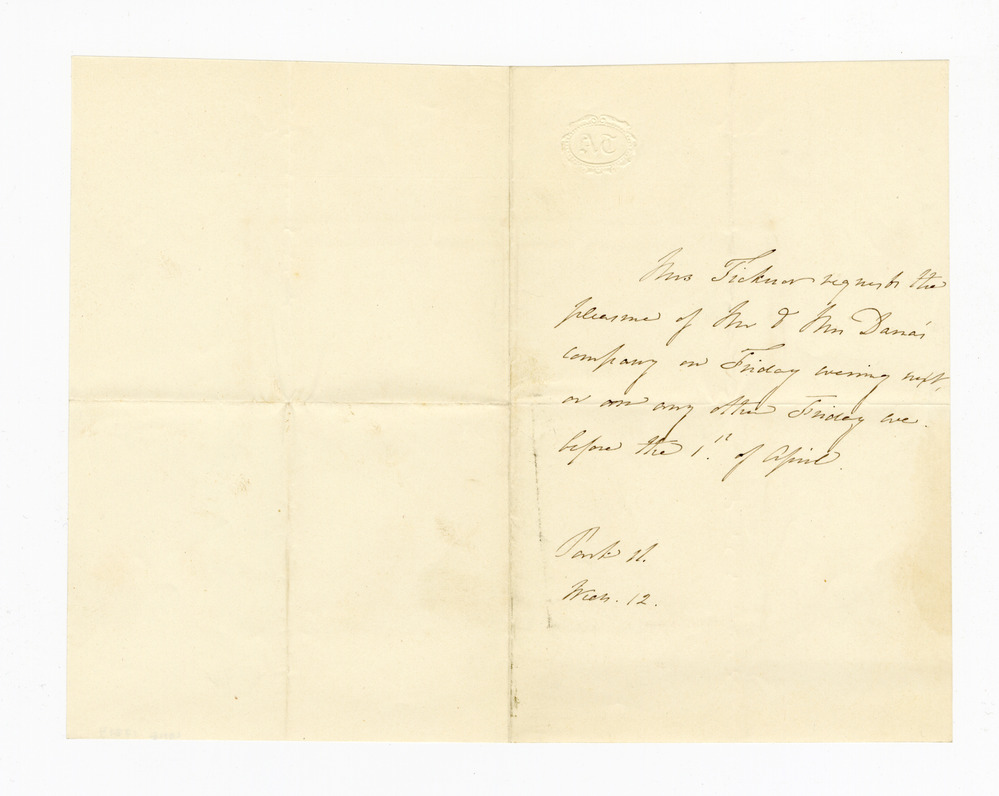 AT
Mrs Ticknor requests the
pleasure of Mr & Mrs Dana's
company on Friday evening next,
or on any other Friday eve.
before the 1.st of April.
Park St.
Wed. 12.